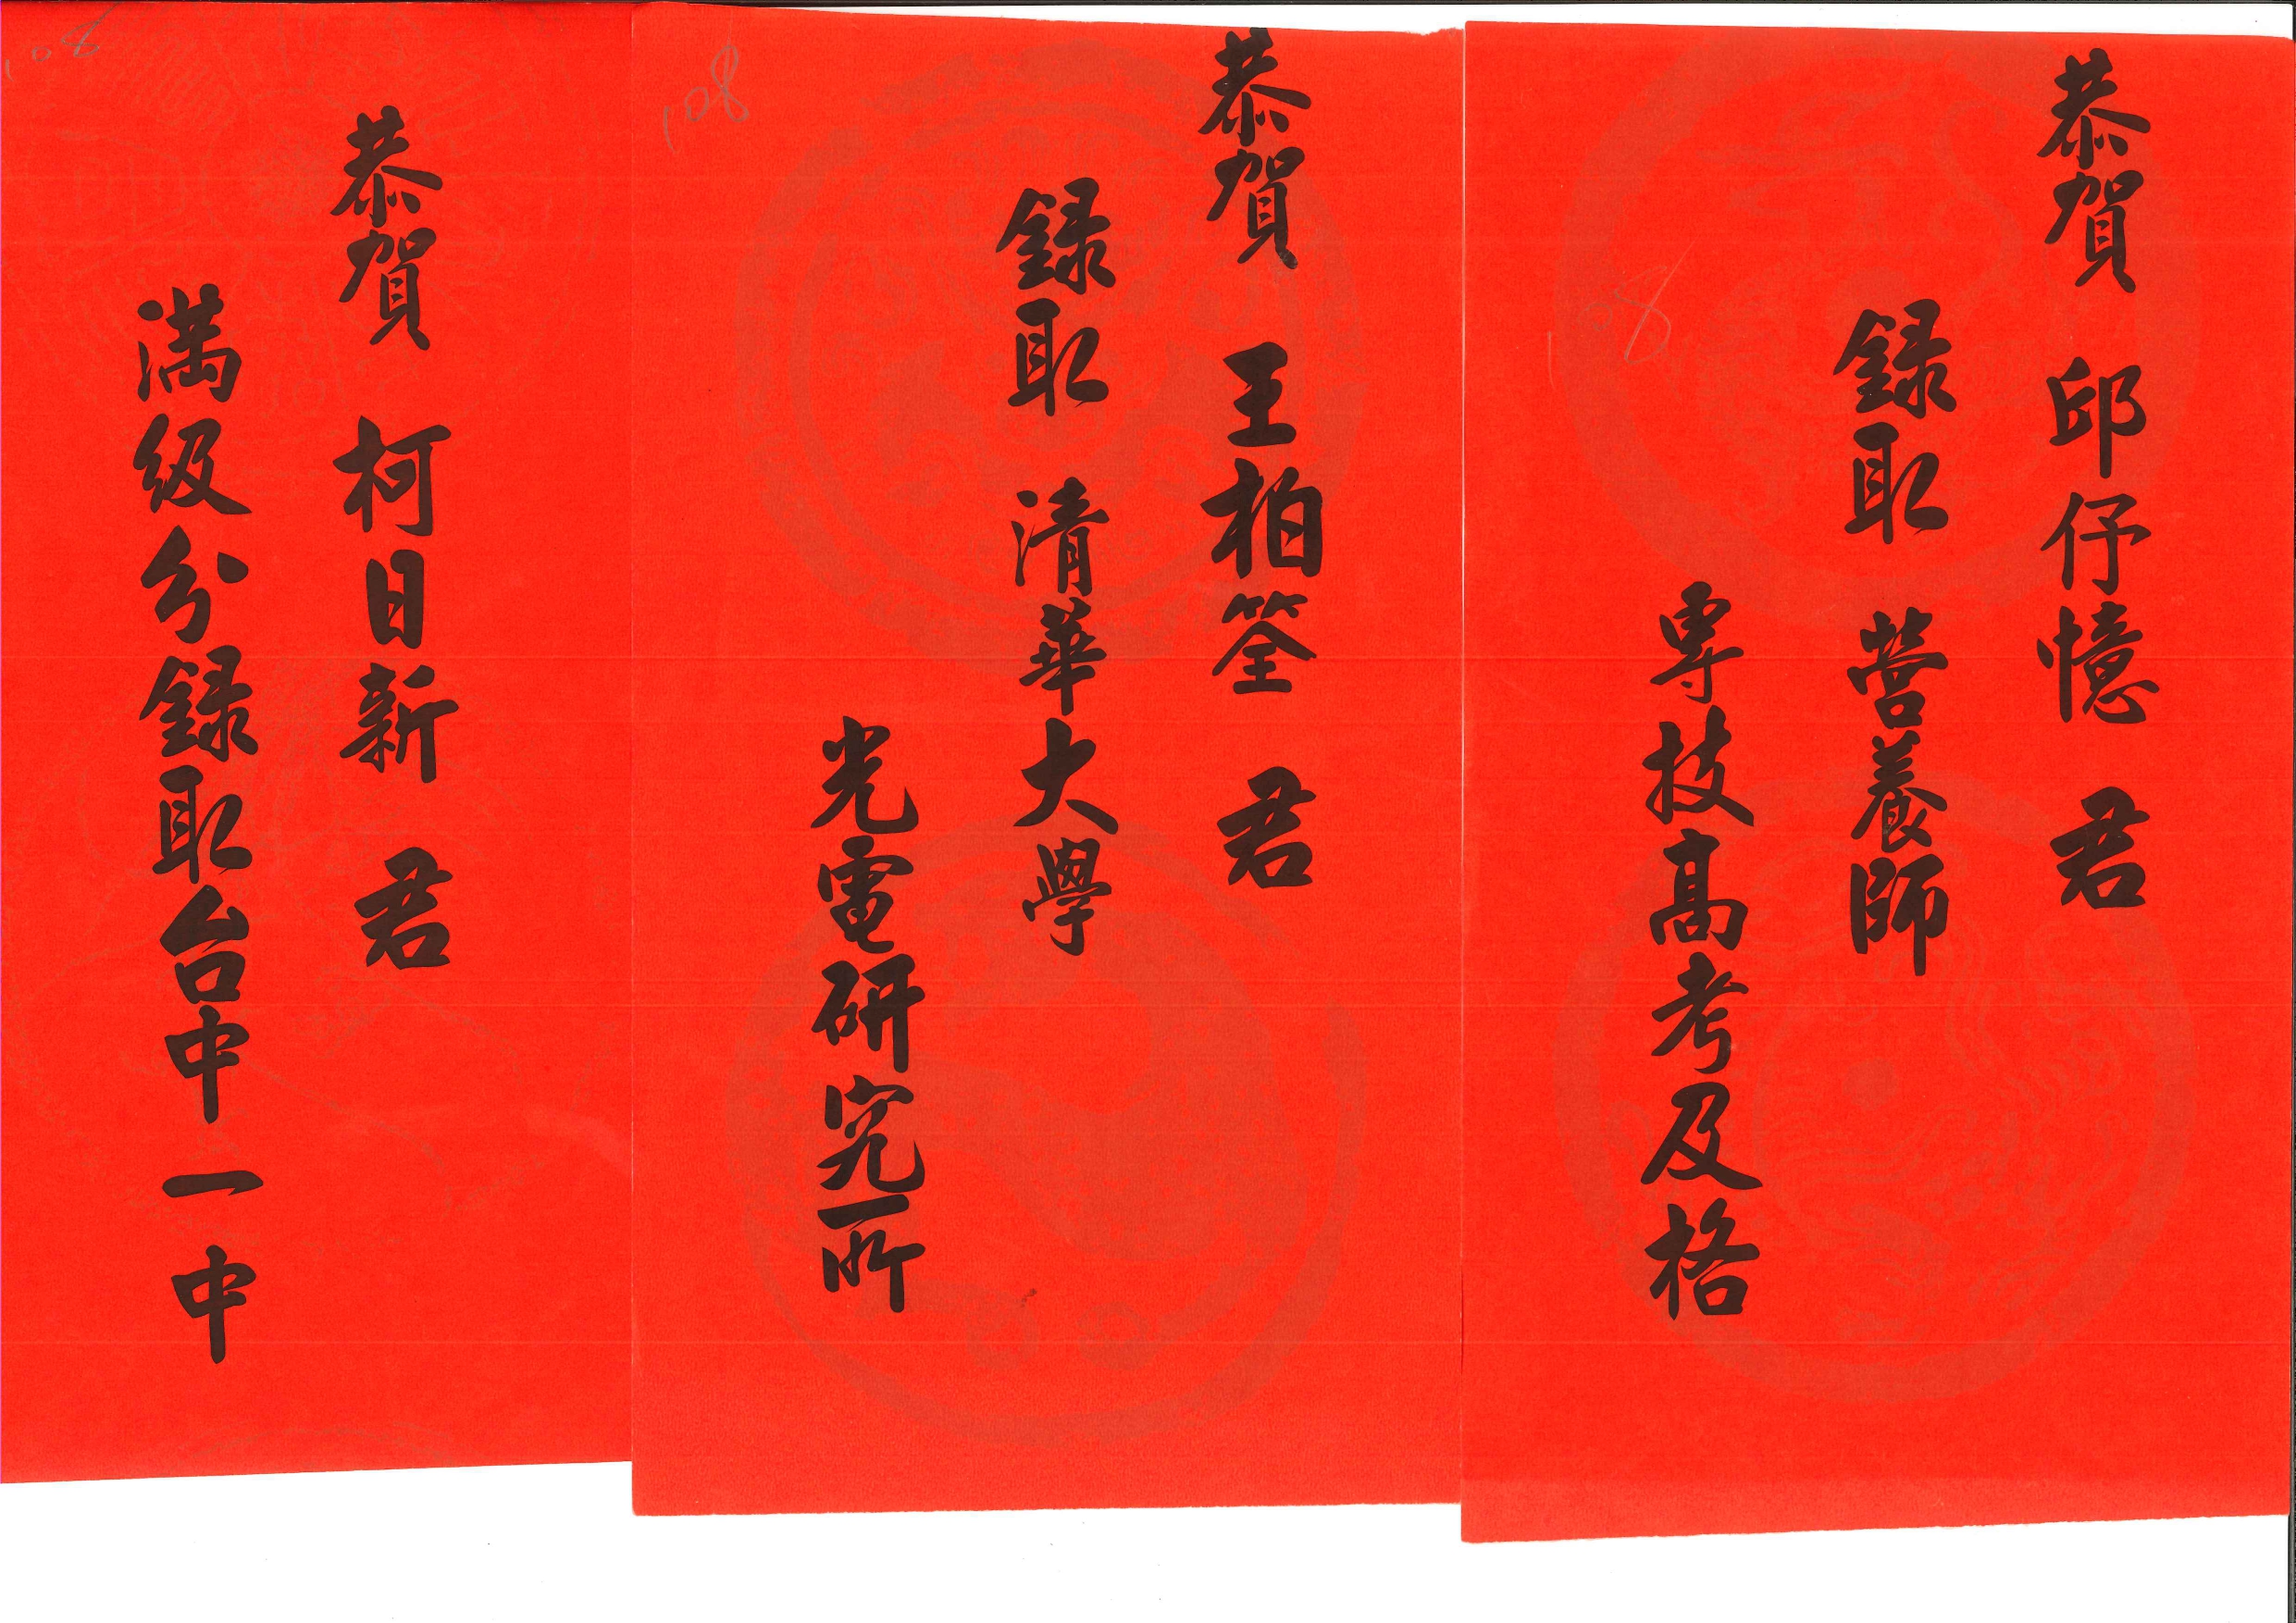 恭賀 邱仔憶 君
錄取 營養師
專技高考及格
108
恭賀 王柏筌 君
錄取 清華大學
光電研究所
108
恭賀 柯日新 君
滿級分錄取台中一中
108